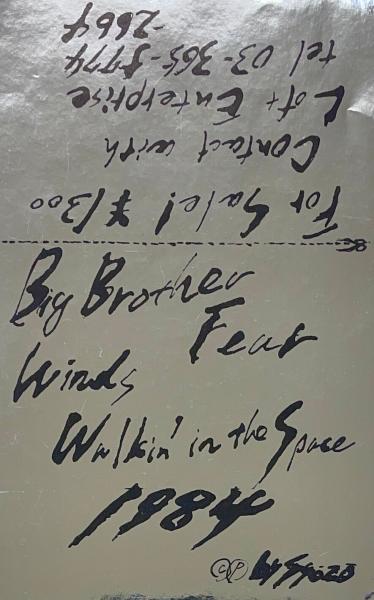 For Sale! ¥1300
Contact with
Loft Enterprise
tel
-2664
Big Brother
Fear
Winds
Walkin' in the Space
1984
©℗ by